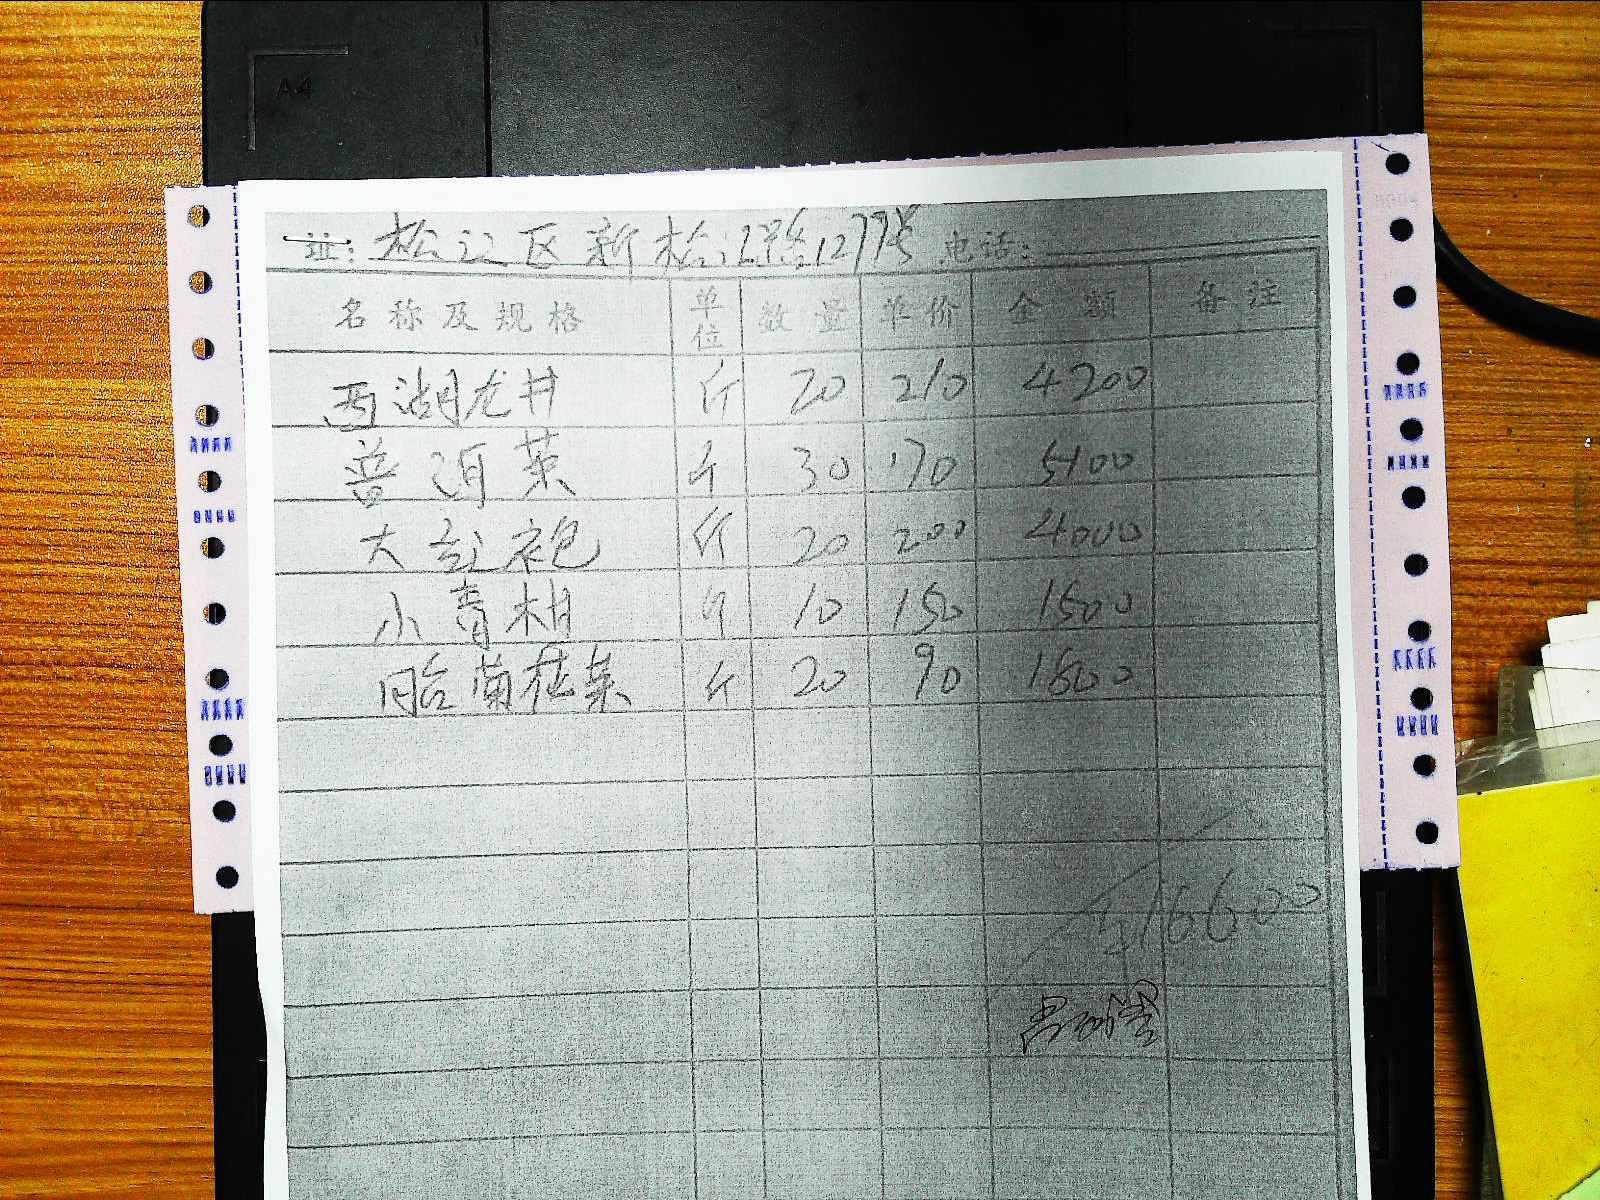 A4
址: 松江区新松江路1277号 电话:
名称及规格 单位 数量 单价 金额 备注
西湖龙井 斤 20 210 4200
普洱茶 斤 30 170 5100
大红袍 斤 20 200 4000
小青柑 斤 10 150 1500
胎菊花茶 斤 20 90 1800
¥16600